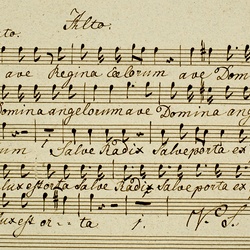 Alto.
to.
ave Regina cœlorum ave Dom
Domina angelorum ave Domina ang
rum 1 Salve Radix Salve porta ex
lux est orta Salve Radix Salve porta ex
lux est or--ta 1. V. S.